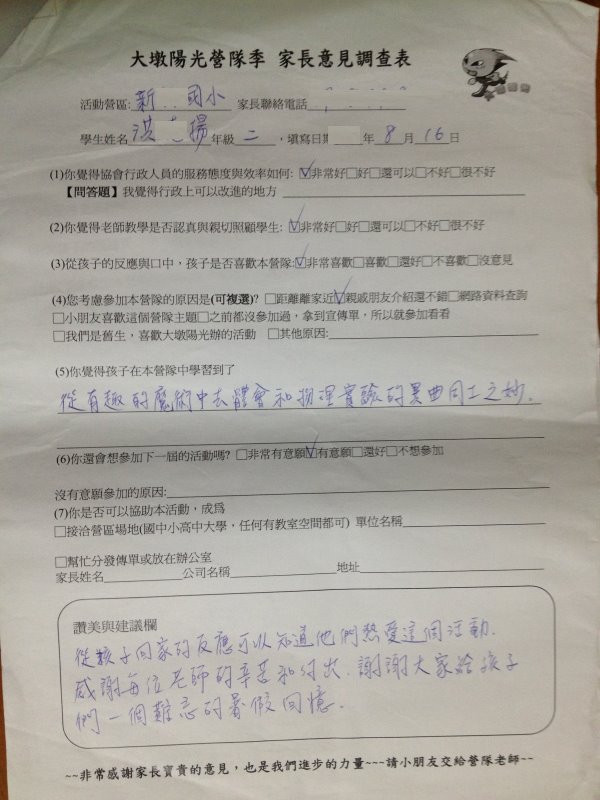 大墩陽光營隊季 家長意見調查表
活動營區: 新 國小 家長聯絡電話
學生姓名 洪 揚 年級 二 , 填寫日期 年 8 月 16 日
(1)你覺得協會行政人員的服務態度與效率如何: ☑非常好□好□還可以□不好□很不好
【問答題】我覺得行政上可以改進的地方
(2)你覺得老師教學是否認真與親切照顧學生: ☑非常好□好□還可以□不好□很不好
(3)從孩子的反應與口中，孩子是否喜歡本營隊:☑非常喜歡□喜歡□還好□不喜歡□沒意見
(4)您考慮參加本營隊的原因是(可複選)? □距離離家近☑親戚朋友介紹還不錯□網路資料查詢
□小朋友喜歡這個營隊主題□之前都沒參加過，拿到宣傳單，所以就參加看看
□我們是舊生，喜歡大墩陽光辦的活動 □其他原因:
(5)你覺得孩子在本營隊中學習到了
從有趣的魔術中去體會和物理實驗的異曲同工之妙.
(6)你還會想參加下一屆的活動嗎? □非常有意願☑有意願□還好□不想參加
沒有意願參加的原因:
(7)你是否可以協助本活動，成為
□接洽營區場地(國中小高中大學，任何有教室空間都可) 單位名稱
□幫忙分發傳單或放在辦公室
家長姓名 公司名稱 地址
讚美與建議欄
從孩子回家的反應可以知道他們熱愛這個活動.
感謝每位老師的辛苦和付出.謝謝大家給孩子
們一個難忘的暑假回憶.
~~非常感謝家長寶貴的意見，也是我們進步的力量~~~請小朋友交給營隊老師~~